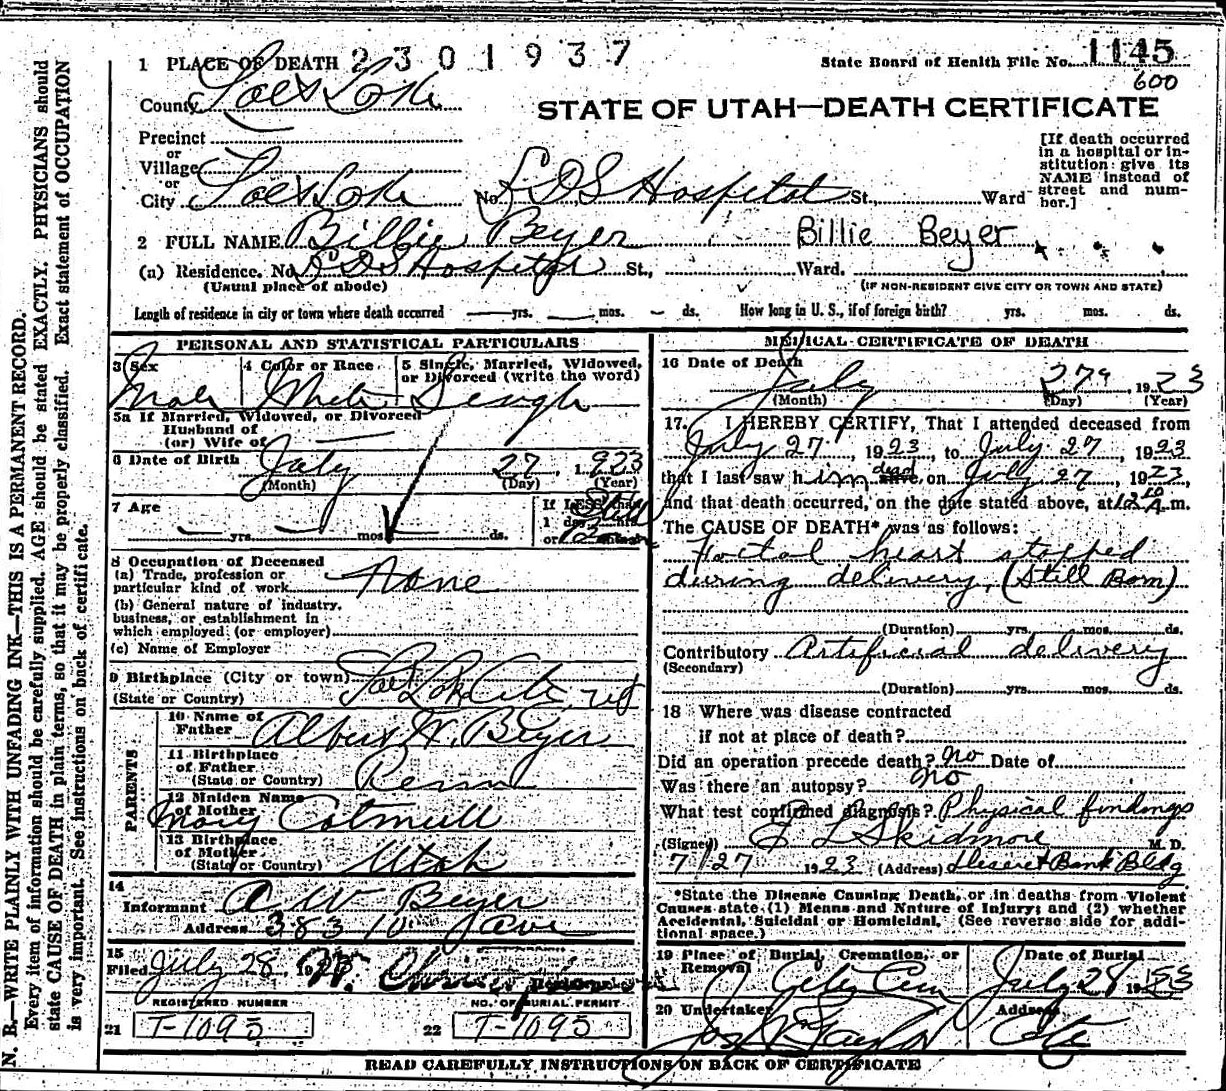 1 PLACE OF DEATH 2301937
State Board of Health File No. 1145
600
County Salt Lake
STATE OF UTAH—DEATH CERTIFICATE
Precinct
or
Village
or
City Salt Lake No. LDS Hospital St., Ward
[If death occurred
in a hospital or in-
stitution give its
NAME instead of
street and num-
ber.]
2 FULL NAME Billie Beyer Billie Beyer
(a) Residence. No. LDS Hospital St., Ward.
(Usual place of abode) (IF NON-RESIDENT GIVE CITY OR TOWN AND STATE)
Length of residence in city or town where death occurred yrs. mos. ds. How long in U. S., if of foreign birth? yrs. mos. ds.
PERSONAL AND STATISTICAL PARTICULARS
3 Sex 4 Color or Race 5 Single, Married, Widowed,
or Divorced (write the word)
Male White Single
5a If Married, Widowed, or Divorced
Husband of
(or) Wife of
6 Date of Birth July 27, 1923
(Month) (Day) (Year)
7 Age If LESS than
1 day hrs.
yrs. mos. ds. or
8 Occupation of Deceased
(a) Trade, profession or
particular kind of work None
(b) General nature of industry,
business, or establishment in
which employed (or employer)
(c) Name of Employer
9 Birthplace (City or town) Salt Lake City, Ut
(State or Country)
PARENTS
10 Name of
Father Albert W. Beyer
11 Birthplace
of Father
(State or Country) Penn
12 Maiden Name
of Mother Mary Cotmull
13 Birthplace
of Mother
(State or Country) Utah
14
Informant A W Beyer
Address 383 10 Ave
15
Filed July 28 1923
REGISTERED NUMBER NO. OF BURIAL PERMIT
21 T-1095 22 T-1095
MEDICAL CERTIFICATE OF DEATH
16 Date of Death
July 27, 1923
(Month) (Day) (Year)
17. I HEREBY CERTIFY, That I attended deceased from
July 27, 1923, to July 27, 1923
that I last saw him dead alive on July 27, 1923,
and that death occurred, on the date stated above, at 12 10 A.m.
The CAUSE OF DEATH* was as follows:
Foetal heart stopped
during delivery. (Still Born)
(Duration) yrs. mos. ds.
Contributory Artificial delivery
(Secondary)
(Duration) yrs. mos. ds.
18 Where was disease contracted
if not at place of death?
Did an operation precede death? no Date of
Was there an autopsy? no
What test confirmed diagnosis? Physical findings
(Signed) L Skidmore M. D.
7/27 1923 (Address) Deseret Bank Bldg
*State the Disease Causing Death, or in deaths from Violent
Causes state (1) Means and Nature of Injury; and (2) whether
Accidental, Suicidal or Homicidal. (See reverse side for addi-
tional space.)
19 Place of Burial, Cremation, or
Removal
Date of Burial
City Cem July 28 1923
20 Undertaker Address
Taylor City
READ CAREFULLY INSTRUCTIONS ON BACK OF CERTIFICATE
N. B.—WRITE PLAINLY WITH UNFADING INK—THIS IS A PERMANENT RECORD.
Every item of information should be carefully supplied. AGE should be stated EXACTLY. PHYSICIANS should
state CAUSE OF DEATH in plain terms, so that it may be properly classified. Exact statement of OCCUPATION
is very important. See instructions on back of certificate.